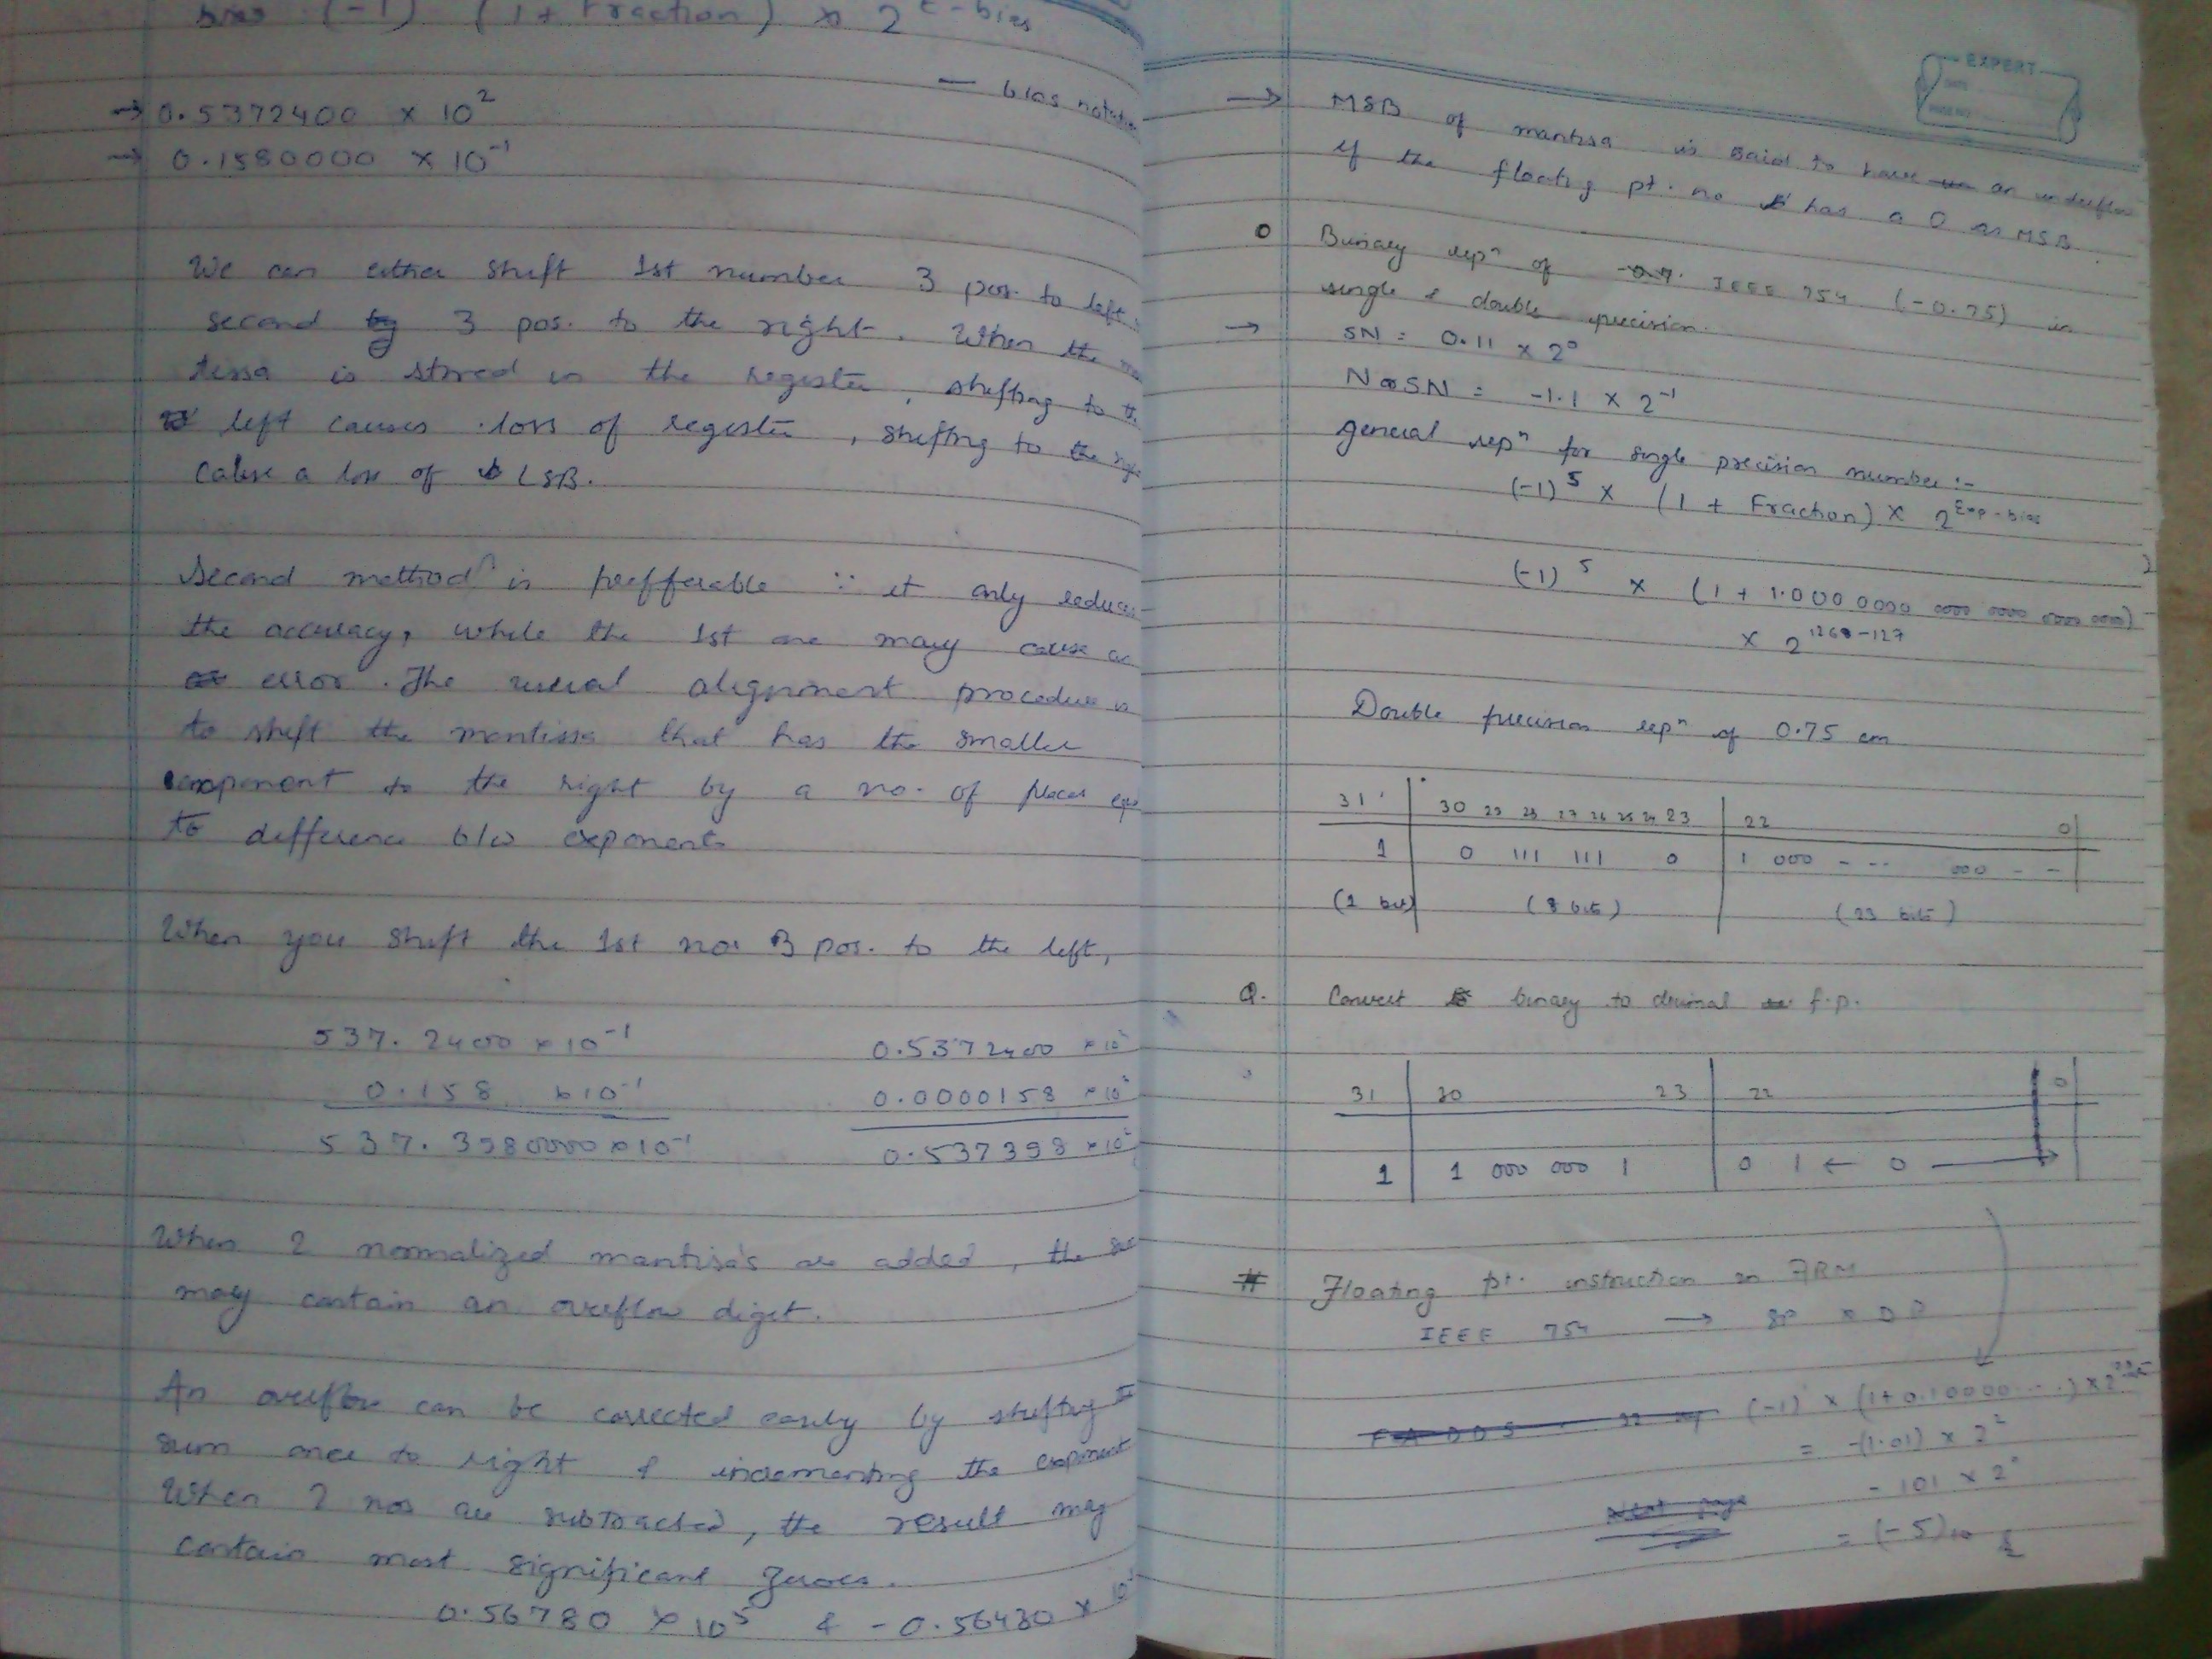 bias (-1) (1 + Fraction) x 2 E-bias
— bias
→ 0.5372400 x 10²
→ 0.1580000 x 10⁻¹
We can either shift 1st number 3 pos. to left
second by 3 pos. to the right. When the
tissa is stored in the register, shifting to
left causes loss of register, shifting to the
cause a loss of LSB.
Second method is prefferable ∵ it only reduces
the accuracy, while the 1st one may cause
error. The usual alignment procedure is
to shift the mantissa that has the smaller
exponent to the right by a no. of places
to difference b/w exponents
When you shift the 1st no. 3 pos. to the left,
537.2400 x 10⁻¹ 0.5372400 x 10²
0.158 x 10⁻¹ 0.0000158 x 10²
537.3980000 x 10⁻¹ 0.537398 x 10²
When 2 normalized mantisa's are added, the
may contain an overflow digit.
An overflow can be corrected easily by shifting
sum once to right & incrementing the exponent
When 2 nos are subtracted, the result may
contain most significant zeroes.
0.56780 x 10⁵ & - 0.56430 x 10⁵
EXPERT
DATE
PAGE NO.
→ MSB of mantisa is said to have an underflow
if the floating pt. no has a 0 as MSB.
0 Binary repⁿ of IEEE 754 (-0.75) in
single & double precision.
→ SN = 0.11 x 2⁰
NSN = -1.1 x 2⁻¹
general repⁿ for single precision number :-
(-1)ˢ x (1 + Fraction) x 2 Exp-bias
(-1)ˢ x (1 + 1.000 0000 0000 0000 0000 000)
x 2
Double precision repⁿ of 0.75 cm
31 30 29 28 27 26 25 24 23 22 0
1 0 111 111 0 1 000 - - - 000 - -
(1 bit) (8 bits) (23 bits)
Q. Convert binary to decimal f.p.
31 30 23 22 0
1 1 000 000 1 0 1 ← 0 →
# Floating pt. instruction in ARM
IEEE 754 → SP & DP
(-1) x (1+0.10000...) x 2
= -(1.01) x 2²
- 101 x 2⁰
= (-5)₁₀